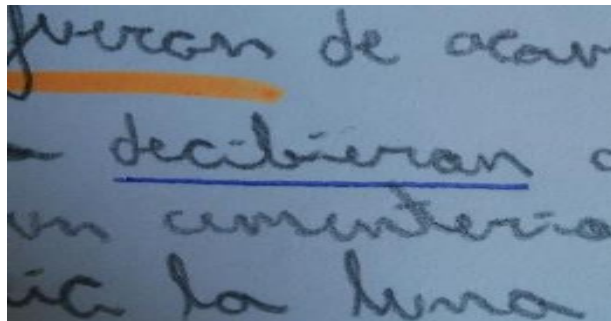 fueron de acav
decibieran
un cementerio
ia la luna